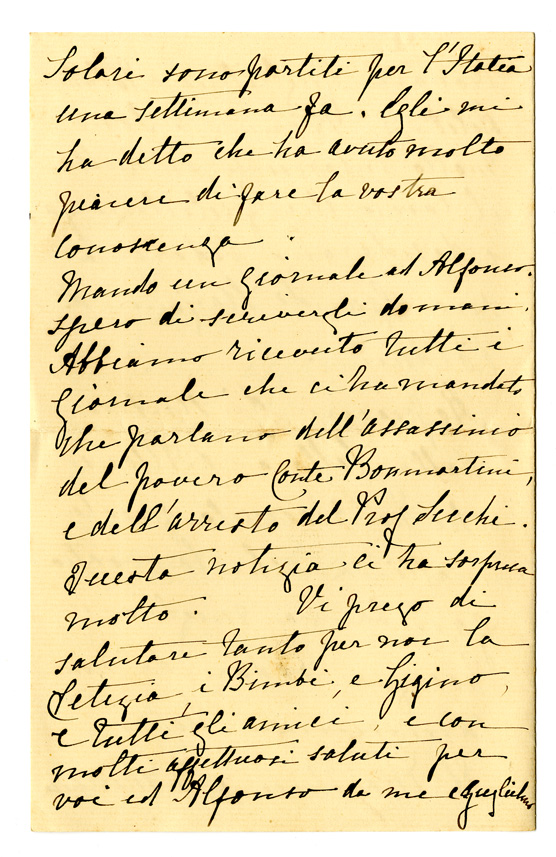 Solari sono partiti per l'Italia
una settimana fa. Egli mi
ha detto che ha avuto molto
piacere di fare la vostra
conoscenza.
Mando un giornale ad Alfonso.
spero di scrivergli domani.
Abbiamo ricevuto tutti i
giornale che ci ha mandato
che parlano dell'assassinio
del povero Conte Bonmartini,
e dell'arresto del Prof Secchi.
Questa notizia ci ha sorpresa
molto. Vi prego di
salutare tanto per noi la
Letizia, i Bimbi, e Gigino,
e tutti gli amici, e con
molti affettuosi saluti per
voi ed Alfonso da me e Guglielmo